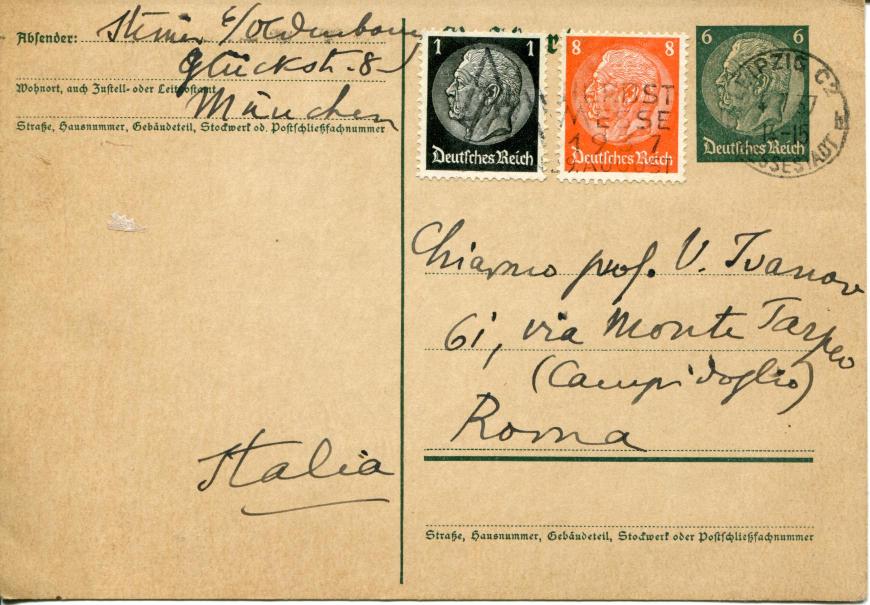 Absender: Steiner c/o Oldenbourg
Glückstr. 8
Wohnort, auch Zustell- oder Leitpostamt
München
Straße, Hausnummer, Gebäudeteil, Stockwerk od. Postschließfachnummer
1 1
Deutsches Reich
8 8
Deutsches Reich
6 6
Deutsches Reich
LEIPZIG C2
37
-15
MESSESTADT
MESSE
1937
29. AUGUST
Chiarmo prof. V. Ivanov
61, via Monte Tarpeo
(Campidoglio)
Roma
Italia
Straße, Hausnummer, Gebäudeteil, Stockwerk oder Postschließfachnummer